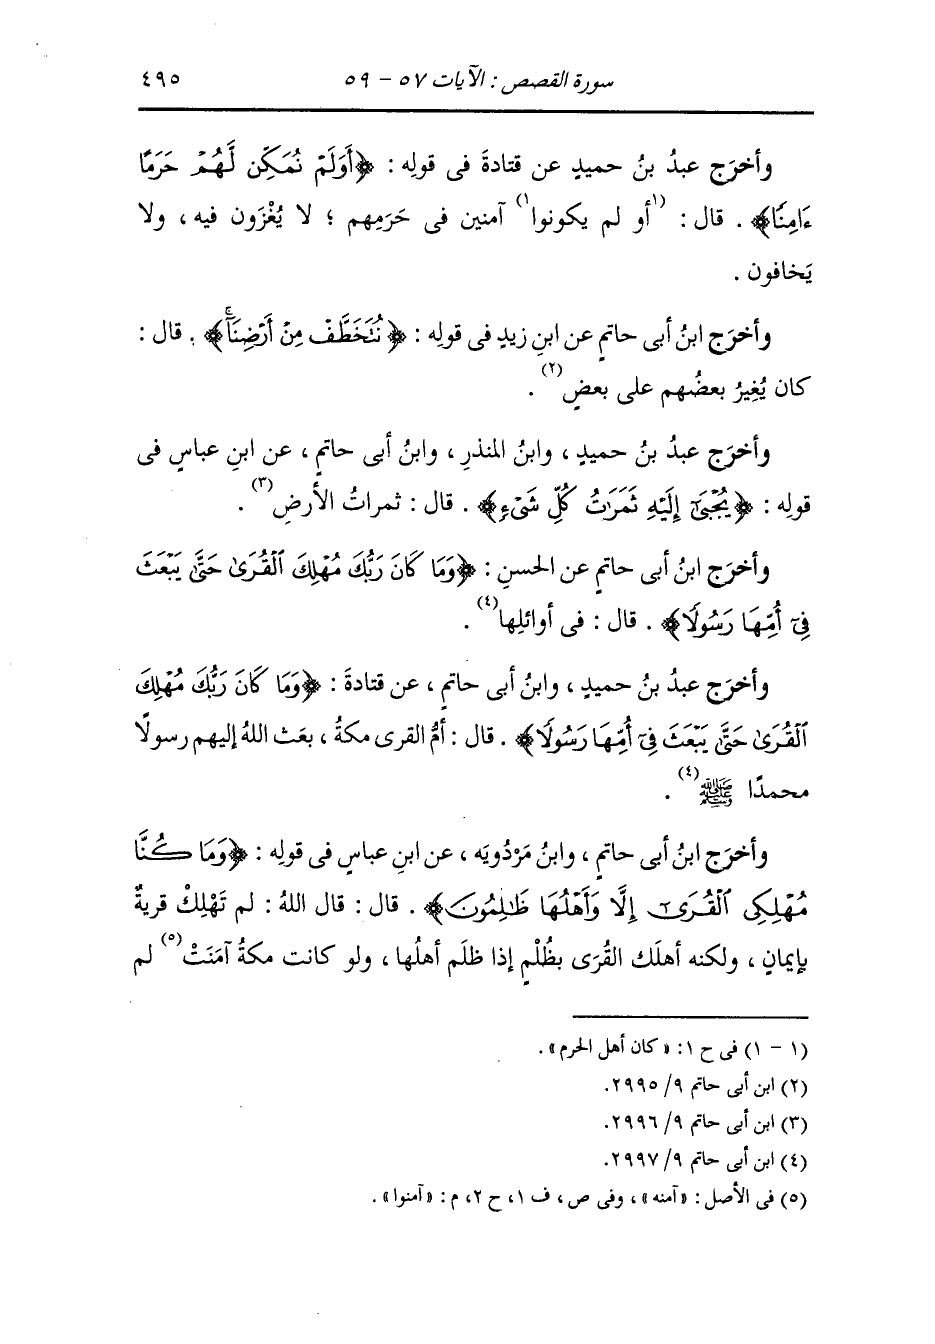 سورة القصص : الآيات ٥٧ - ٥٩
٤٩٥
وأخرَج عبدُ بنُ حميدٍ عن قتادةَ فى قولِه : ﴿أَوَلَمْ نُمَكِّن لَّهُمْ حَرَمًا
ءَامِنًا﴾ . قال : (١أو لم يكونوا١) آمنين فى حَرَمِهم ؛ لا يُغْزَون فيه ، ولا
يَخافون .
وأخرَج ابنُ أبى حاتمٍ عن ابنِ زيدٍ فى قولِه : ﴿نُتَخَطَّفْ مِنْ أَرْضِنَآۚ﴾ . قال :
كان يُغِيرُ بعضُهم على بعضٍ(٢) .
وأخرَج عبدُ بنُ حميدٍ ، وابنُ المنذرِ ، وابنُ أبى حاتمٍ ، عن ابنِ عباسٍ فى
قولِه : ﴿يُجْبَىٰٓ إِلَيْهِ ثَمَرَٰتُ كُلِّ شَىْءٍ﴾ . قال : ثمراتُ الأرضِ(٣) .
وأخرَج ابنُ أبى حاتمٍ عن الحسنِ : ﴿وَمَا كَانَ رَبُّكَ مُهْلِكَ ٱلْقُرَىٰ حَتَّىٰ يَبْعَثَ
فِىٓ أُمِّهَا رَسُولًا﴾ . قال : فى أوائلِها(٤) .
وأخرَج عبدُ بنُ حميدٍ ، وابنُ أبى حاتمٍ ، عن قتادةَ : ﴿وَمَا كَانَ رَبُّكَ مُهْلِكَ
ٱلْقُرَىٰ حَتَّىٰ يَبْعَثَ فِىٓ أُمِّهَا رَسُولًا﴾ . قال : أمُّ القرى مكةُ ، بعَث اللهُ إليهم رسولًا
محمدًا ﷺ(٤) .
وأخرَج ابنُ أبى حاتمٍ ، وابنُ مَرْدُويَه ، عن ابنِ عباسٍ فى قولِه : ﴿وَمَا كُنَّا
مُهْلِكِى ٱلْقُرَىٰٓ إِلَّا وَأَهْلُهَا ظَٰلِمُونَ﴾ . قال : قال اللهُ : لم تَهْلِكْ قريةٌ
بإيمانٍ ، ولكنه أهلَك القُرَى بظُلْمٍ إذا ظلَم أهلُها ، ولو كانت مكةُ آمَنَتْ(٥) لم
(١ - ١) فى ح ١: «كان أهل الحرم» .
(٢) ابن أبى حاتم ٩/ ٢٩٩٥.
(٣) ابن أبى حاتم ٩/ ٢٩٩٦.
(٤) ابن أبى حاتم ٩/ ٢٩٩٧.
(٥) فى الأصل : «آمنه» ، وفى ص ، ف ١، ح ٢، م : «آمنوا» .